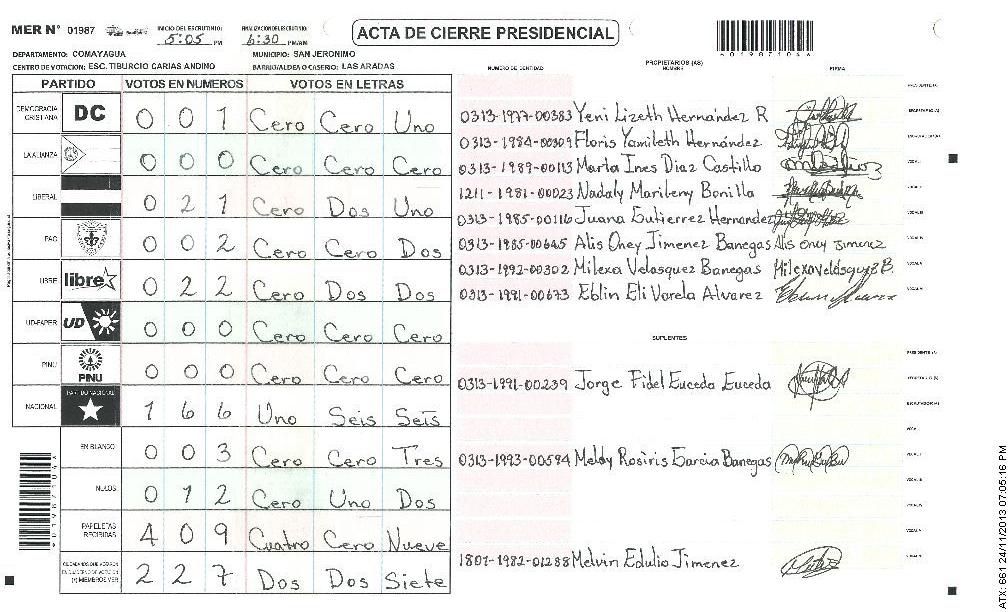 MER N° 01987
INICIO DEL ESCRUTINIO: 5:05 PM
FINALIZACION DEL ESCRUTINIO: 6:30 PM/AM
ACTA DE CIERRE PRESIDENCIAL
DEPARTAMENTO: COMAYAGUA
MUNICIPIO: SAN JERONIMO
CENTRO DE VOTACION: ESC. TIBURCIO CARIAS ANDINO
BARRIO/ALDEA O CASERIO: LAS ARADAS
PARTIDO VOTOS EN NUMEROS VOTOS EN LETRAS
DEMOCRACIA CRISTIANA DC 0 0 1 Cero Cero Uno
LA ALIANZA 0 0 0 Cero Cero Cero
LIBERAL 0 2 1 Cero Dos Uno
PAC 0 0 2 Cero Cero Dos
LIBRE libre 0 2 2 Cero Dos Dos
UD-FAPER UD 0 0 0 Cero Cero Cero
PINU PINU 0 0 0 Cero Cero Cero
NACIONAL PARTIDO NACIONAL 1 6 6 Uno Seis Seis
EN BLANCO 0 0 3 Cero Cero Tres
NULOS 0 1 2 Cero Uno Dos
PAPELETAS RECIBIDAS 4 0 9 Cuatro Cero Nueve
2 2 7 Dos Dos Siete
NUMERO DE IDENTIDAD PROPIETARIOS (AS) NOMBRE FIRMA
PRESIDENTE (A)
0313-1977-00383 Yeni Lizeth Hernandez R SECRETARIO (A)
0313-1984-00309 Floris Yamileth Hernández
0313-1989-00113 Marta Ines Diaz Castillo
1211-1981-00023 Nadaly Marileny Bonilla
0313-1985-00116 Juana Gutierrez Hernandez
0313-1985-00645 Alis Oney Jimenez Banegas Alis oney Jimenez
0313-1992-00302 Milexa Velasquez Banegas Milexa Velásquez B.
0313-1991-00673 Eblin Eli Varela Alvarez
SUPLENTES
PRESIDENTE (A)
0313-1991-00239 Jorge Fidel Euceda Euceda
0313-1993-00594 Meldy Rosiris Garcia Banegas
1801-1982-01288 Melvin Edulio Jimenez
ATX: 661 24/11/2013 07:05:16 PM